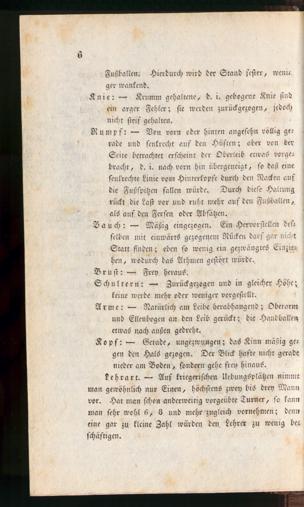 6
Fußballen. Hierdurch wird der Stand fester, weni-
ger wankend.
Knie: — Krumm gehaltene, d. i. gebogene Knie sind
ein arger Fehler; sie werden zurückgezogen, jedoch
nicht steif gehalten.
Rumpf: — Von vorn oder hinten angesehn völlig ge-
rade und senkrecht auf den Hüften; aber von der
Seite betrachtet erscheint der Oberleib etwas vorge-
bracht, d. i. nach vorn hin übergeneigt, so daß eine
senkrechte Linie vom Hinterkopfe durch den Nacken auf
die Fußspitzen fallen würde. Durch diese Haltung
rückt die Last vor und ruht mehr auf den Fußballen,
als auf den Fersen oder Absätzen.
Bauch: — Mäßig eingezogen. Ein Hervorstellen des-
selben mit einwärts gezogenem Rücken darf gar nicht
Statt finden; eben so wenig ein gezwängtes Einzie-
hen, wodurch das Athmen gestört würde.
Brust: — Frey heraus.
Schultern: — Zurückgezogen und in gleicher Höhe;
keine werde mehr oder weniger vorgestellt.
Arme: — Natürlich am Leibe herabhangend; Oberarm
und Ellenbogen an den Leib gerückt; die Handballen
etwas nach außen gedreht.
Kopf: — Gerade, ungezwungen; das Kinn mäßig ge-
gen den Hals gezogen. Der Blick hafte nicht gerade
nieder am Boden, sondern gehe frey hinaus.
Lehrart. — Auf kriegerischen Uebungsplätzen nimmt
man gewöhnlich nur Einen, höchstens zwey bis drey Mann
vor. Hat man schon anderweitig vorgeübte Turner, so kann
man sehr wohl 6, 8 und mehr zugleich vornehmen; denn
eine gar zu kleine Zahl würden den Lehrer zu wenig be-
schäftigen.